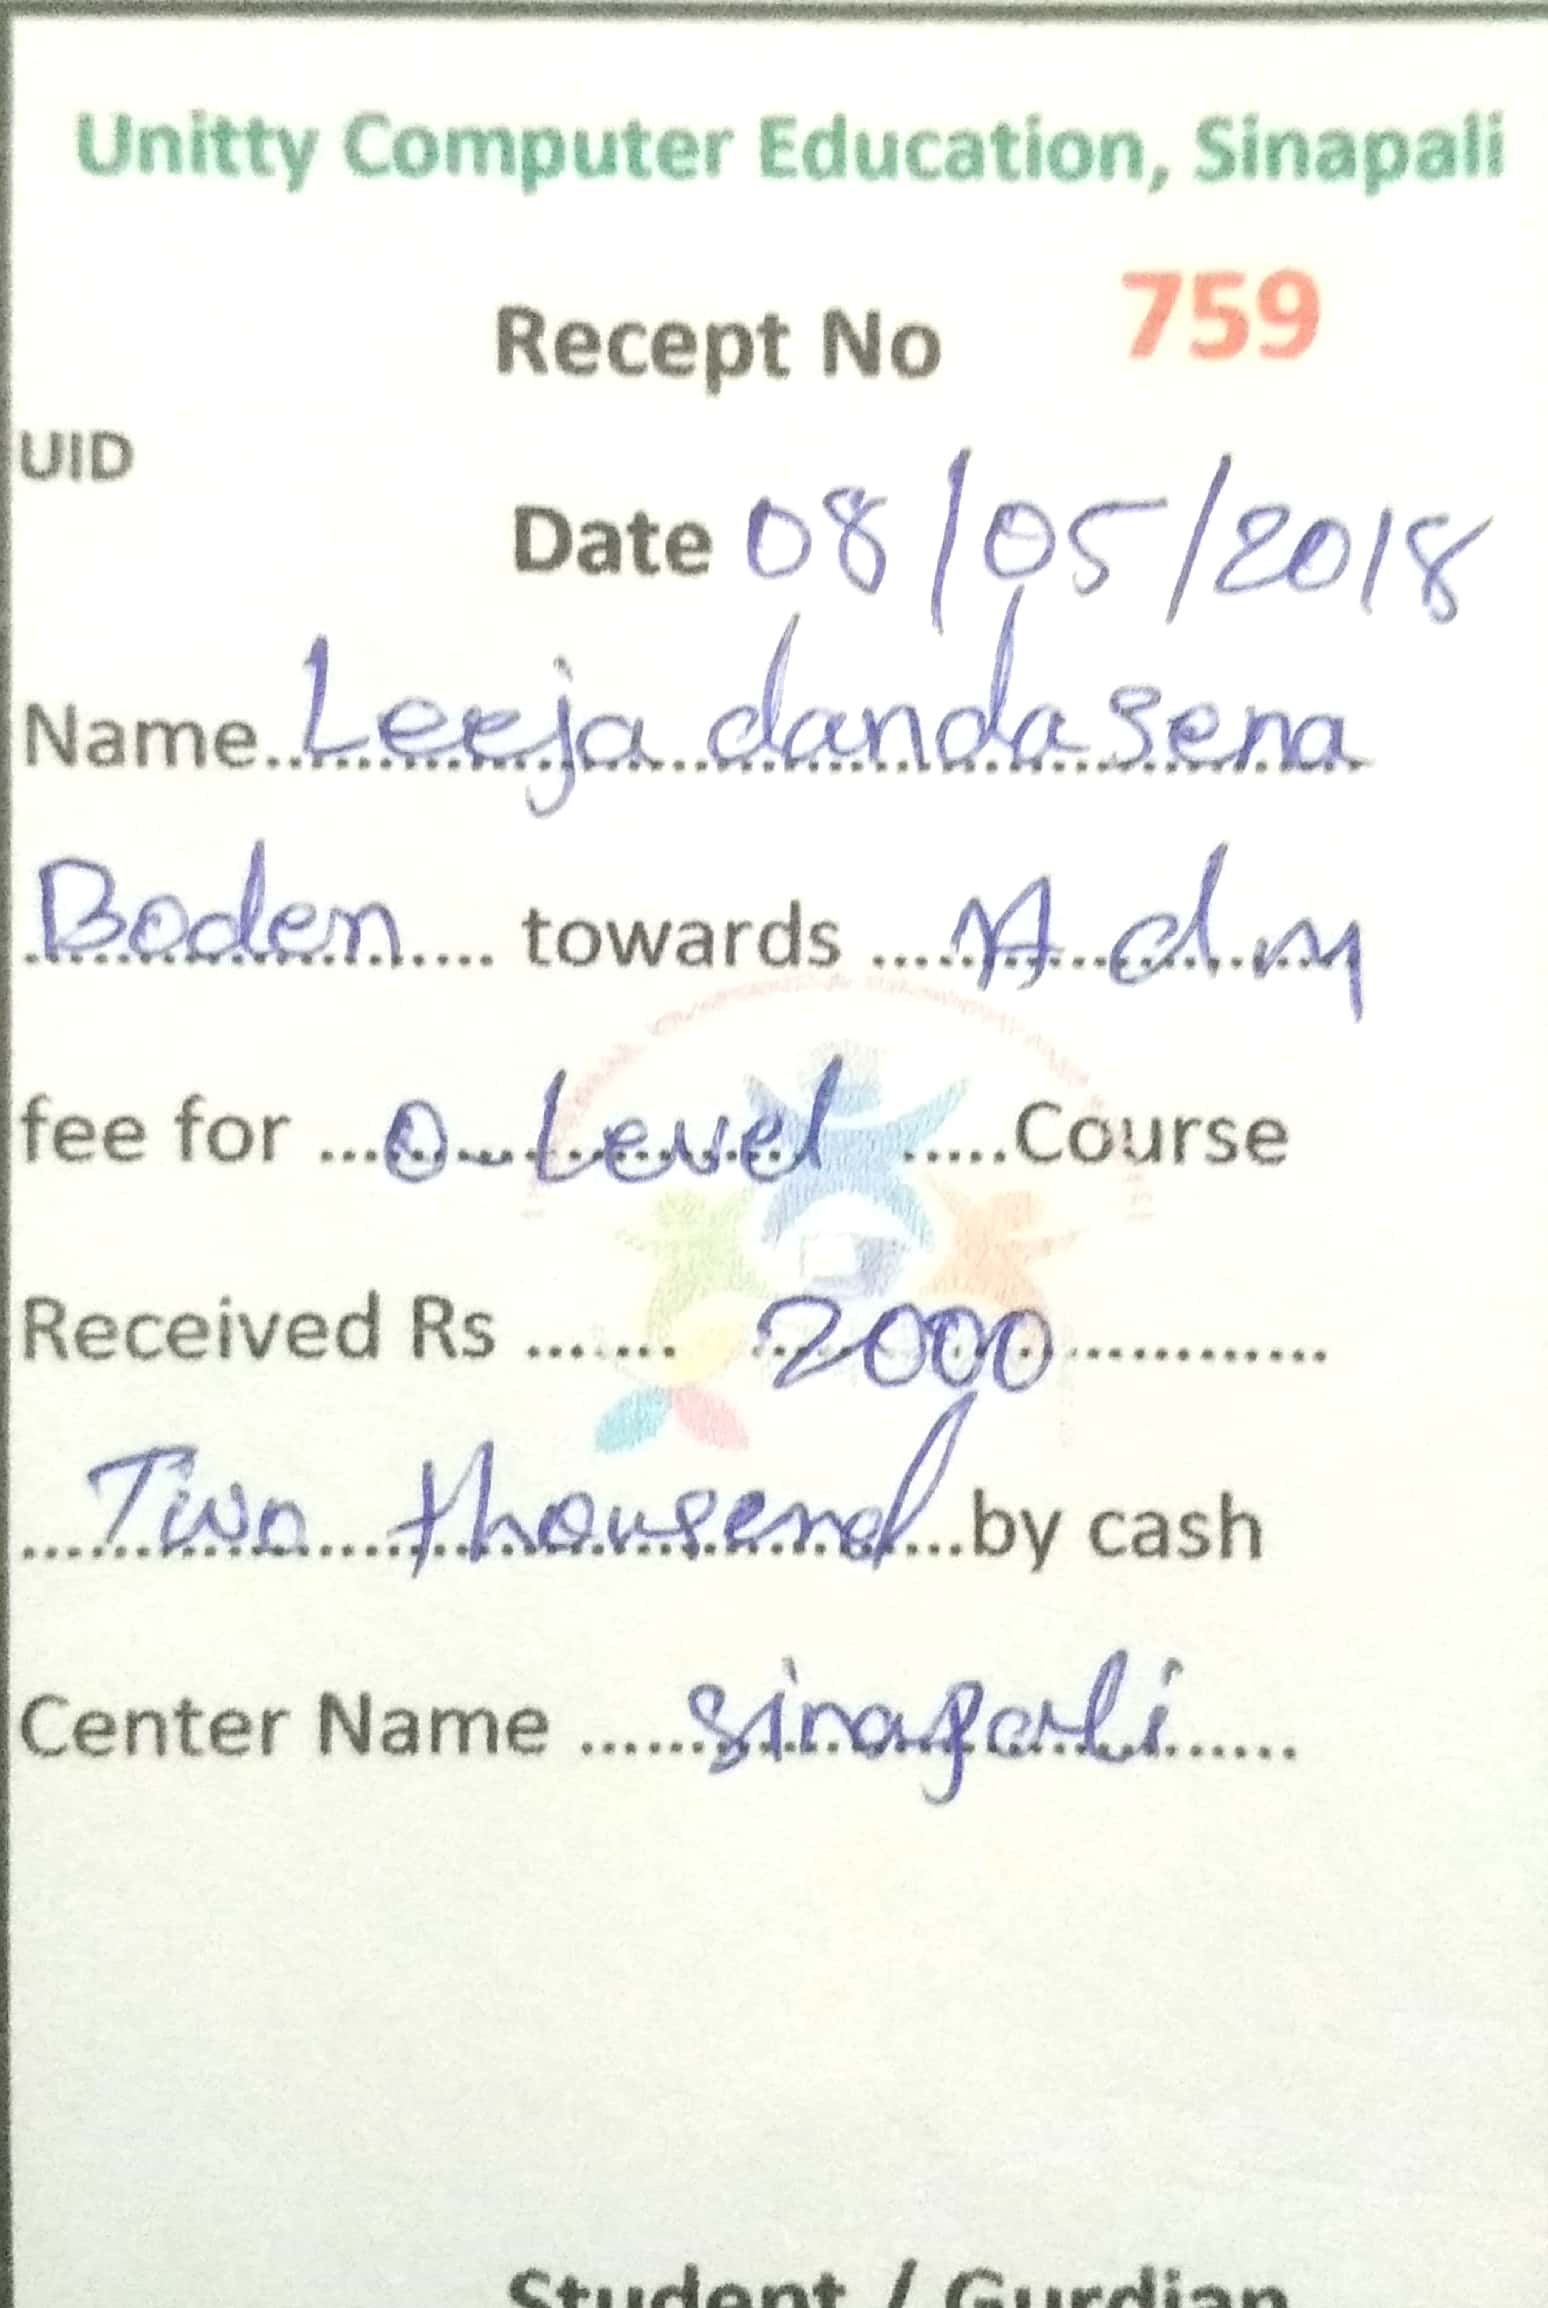 Unitty Computer Education, Sinapali
Recept No 759
UID
Date 08/05/2018
Name Leeja dandasena
Boden towards Adm
fee for O-Level Course
Received Rs 2000
Two thousend by cash
Center Name Sinapali
Student / Gurdian